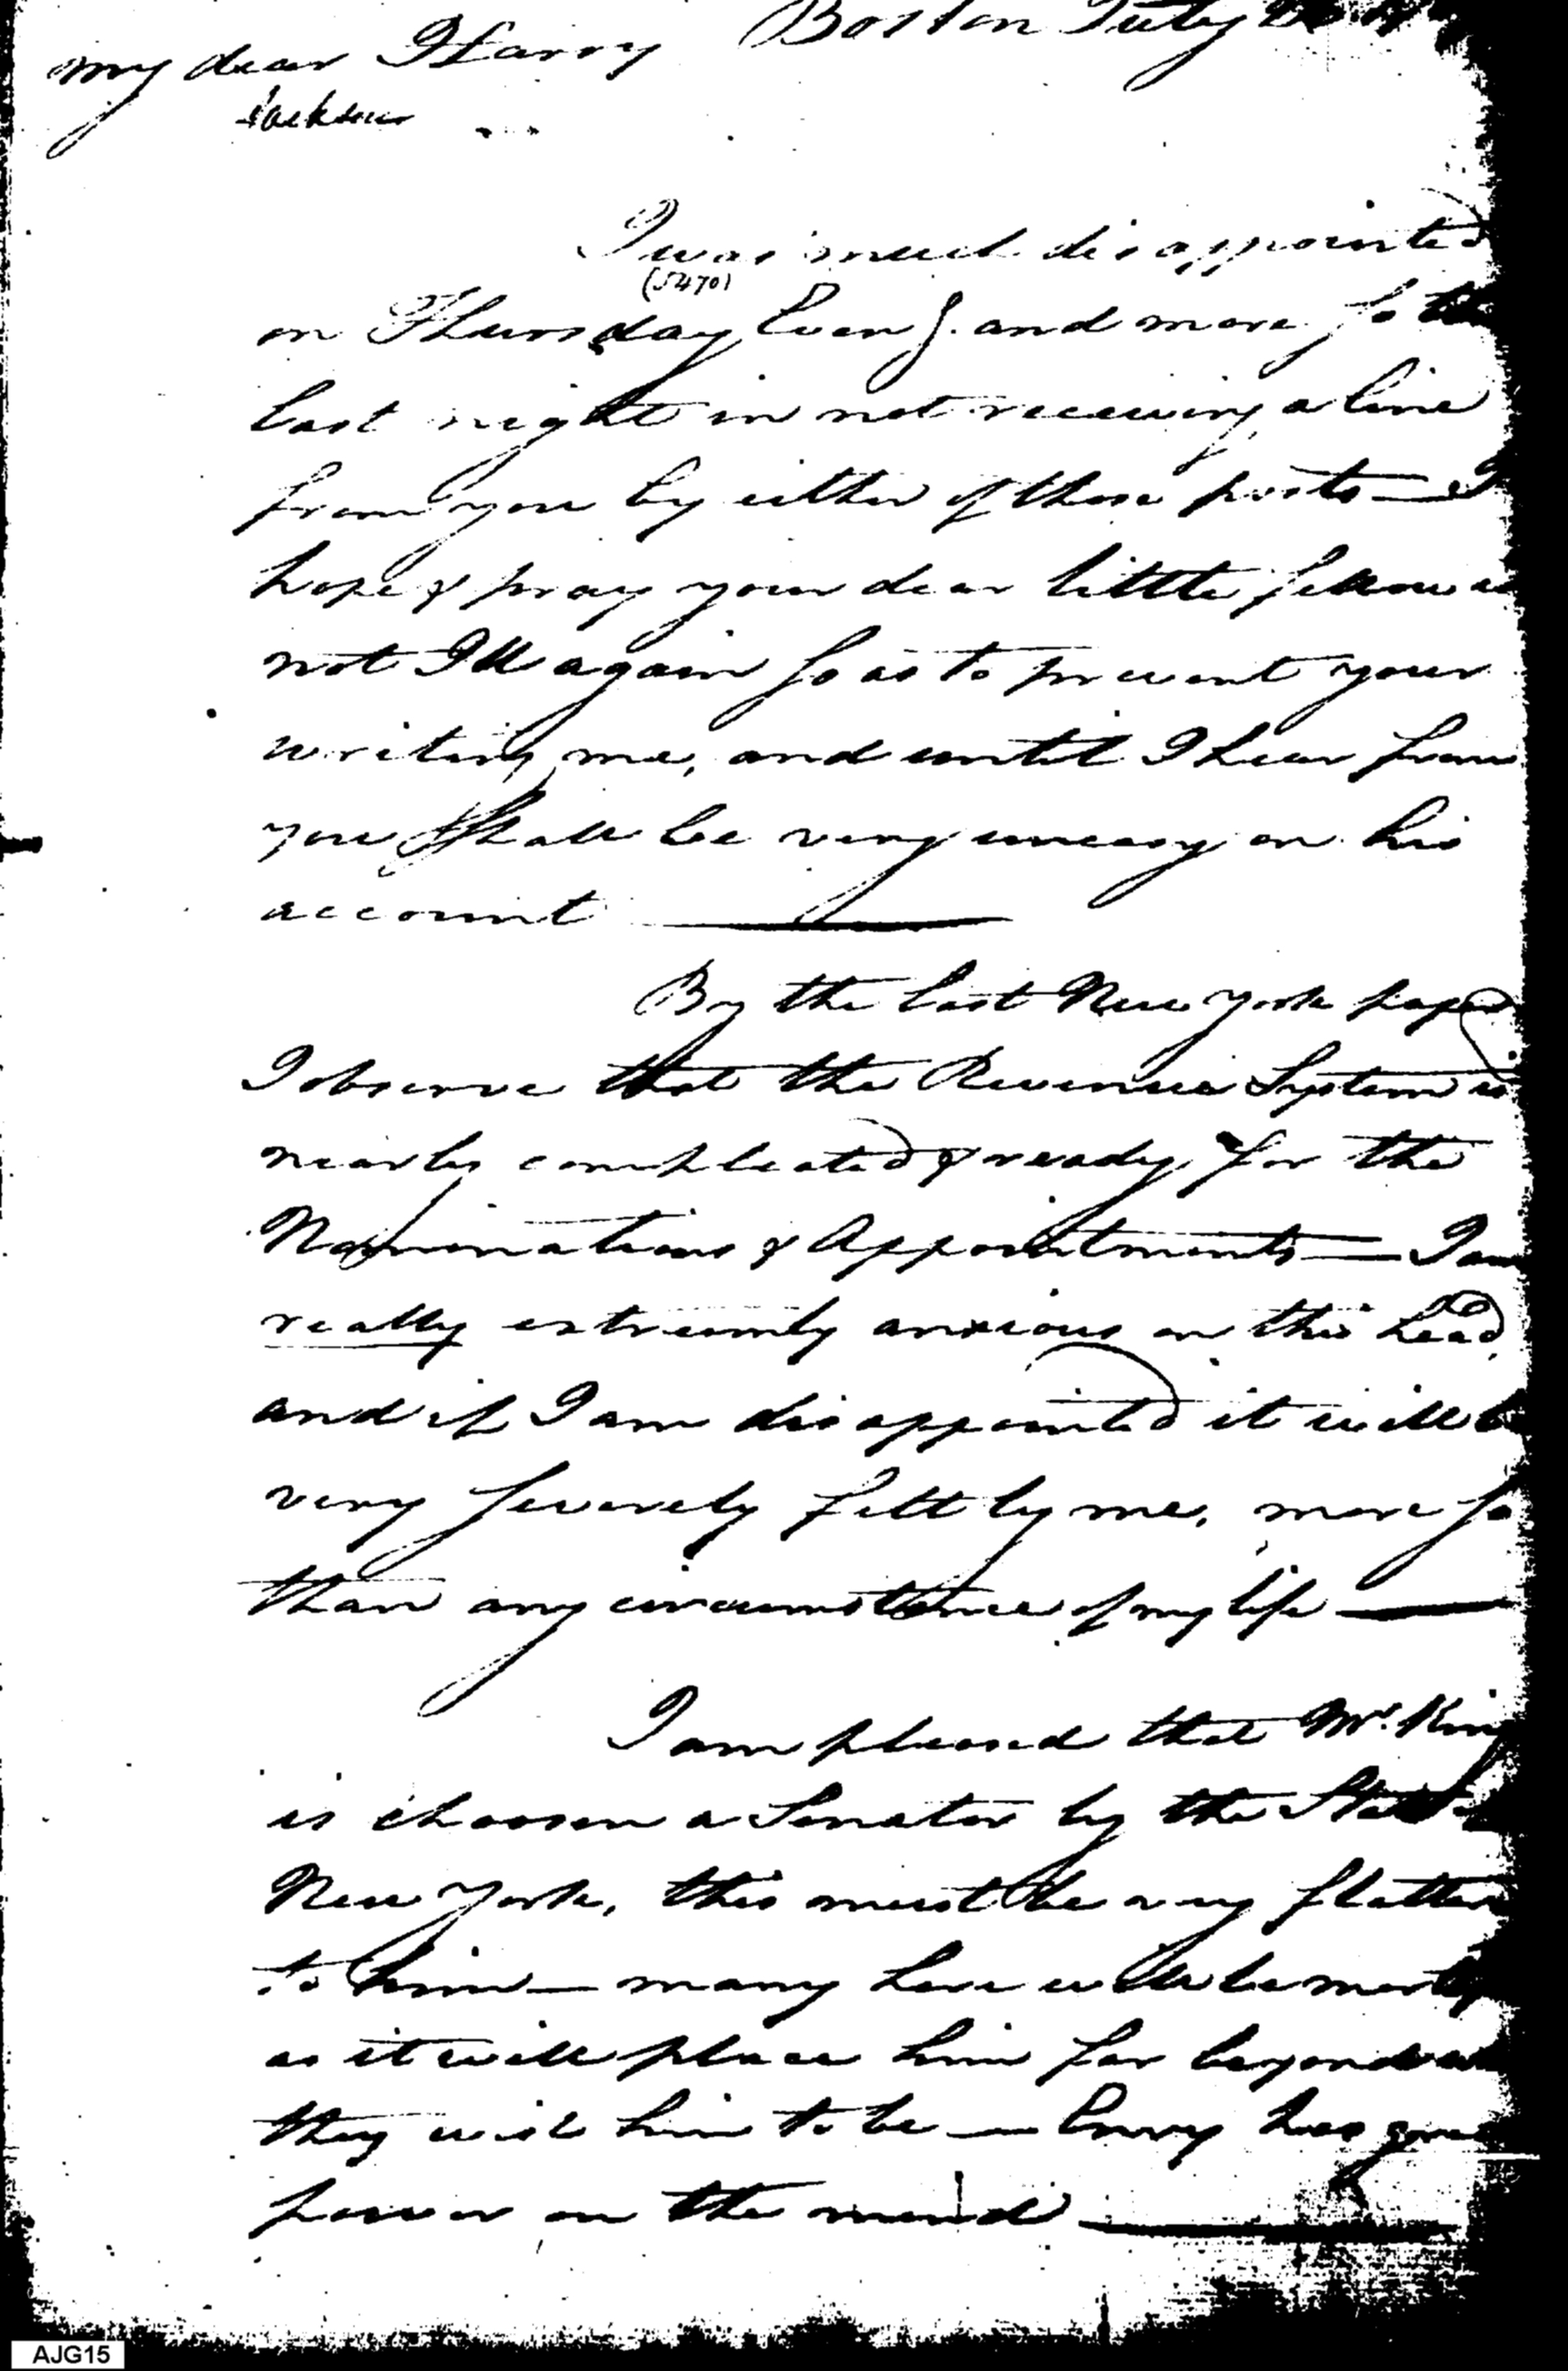 Boston July
my dear Harry
Jackson
I was much disappointed
(5470)
on Thursday Even g. and more so the
last night in not receiving a line
from you by either of those posts — I
hope & pray your dear little fellow is
not Ill again so as to prevent your
writing me, and until I hear from
you I shall be very uneasy on his
account
By the last New York paper
I observe that the Revenue System is
nearly compleated & ready for the
Nominations & Appointments — I am
really extreemly anxious on this head,
and if I am disappointed it will
very severely felt by me, more so
than any circumstance of my life —
I am pleased that Mr. King
is choosen a Senator by the State
New York, this must be very flatter
to him — many here will be
as it will place him far beyond
they wish him to be — Envy has
power on the mind —
AJG15